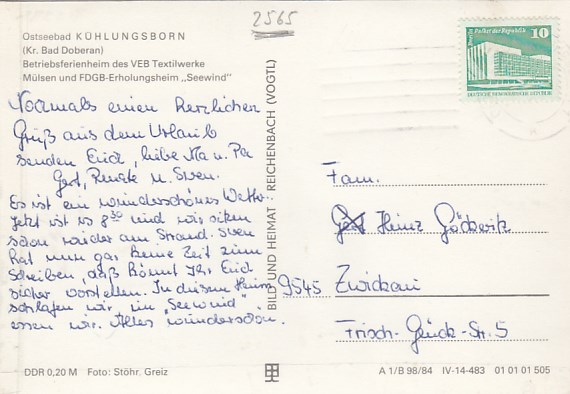 2565
Ostseebad KÜHLUNGSBORN
(Kr. Bad Doberan)
Betriebsferienheim des VEB Textilwerke
Mülsen und FDGB-Erholungsheim „Seewind"
Nochmals einen herzlichen
Gruß aus dem Urlaub
senden Euch, liebe Ma u. Pa
Gert, Renate u. Sven.
Es ist ein wunderschönes Wetter.
Jetzt ist es 8³⁰ und wir sitzen
schon wieder am Strand. Sven
hat nun gar keine Zeit zum
Schreiben, daß könnt Ihr Euch
sicher vorstellen. In diesem Heim
schlafen wir, im „Seewind"
essen wir. Alles wunderschön.
DDR 0,20 M Foto: Stöhr, Greiz
BILD UND HEIMAT REICHENBACH (VOGTL)
Palast der Republik
10
DEUTSCHE DEMOKRATISCHE REPUBLIK
Fam.
Gert Heinz
9545 Zwickau
Frisch-Glück-Str. 5
A 1/B 98/84 IV-14-483 01 01 01 505